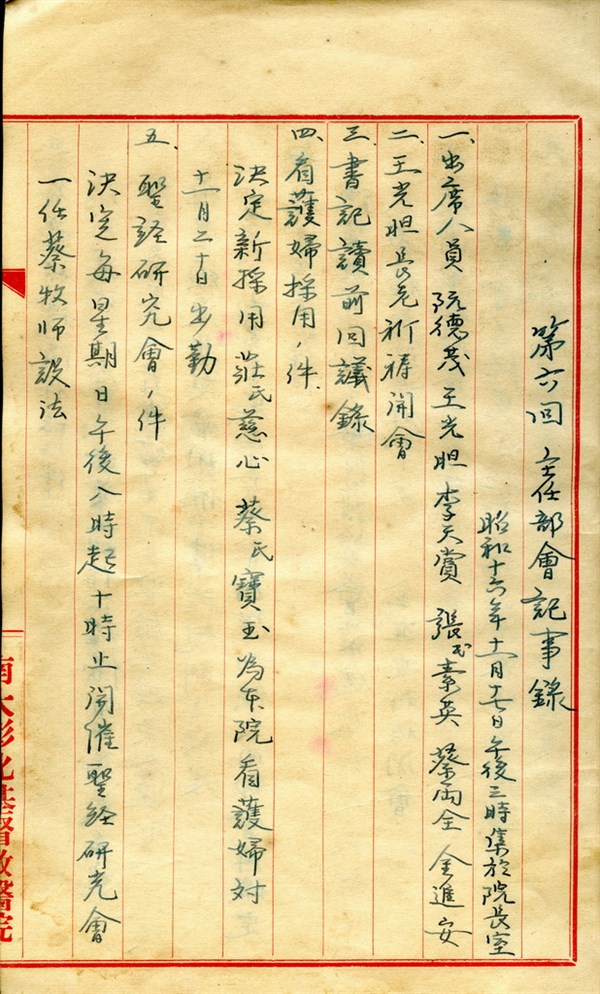 第六回 主任部會記事錄
昭和十六年十一月十七日午後三時集於院長室
一、出席人員 阮德茂 王光胆 李天賞 張氏素英 蔡両全 金進安
二、王光胆長老祈祷開會
三、書記讀前回議錄
四、看護婦採用ノ件
決定新採用 莊氏慈心 蔡氏寶玉 為本院看護婦対
十一月二十日出勤
五、聖経研究會ノ件
決定每星期日午後八時起十時止開催聖経研究會
一任蔡牧師設法
南大彰化基督教醫院